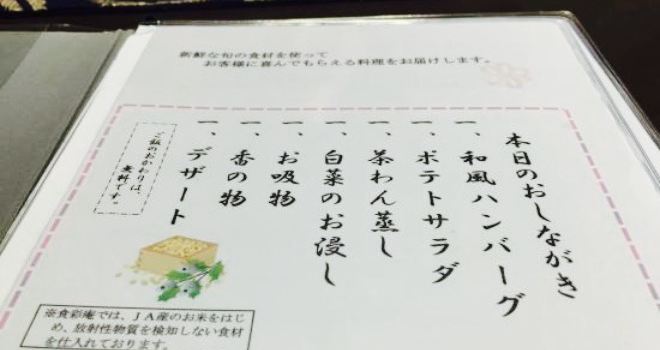 新鮮な旬の食材を使って
お客様に喜んでもらえる料理をお届けします。
本日のおしながき
一、和風ハンバーグ
一、ポテトサラダ
一、茶わん蒸し
一、白菜のお浸し
一、お吸物
一、香の物
一、デザート
ご飯のおかわりは、
無料です。
※食彩庵では、JA産のお米をはじ
め、放射性物質を検知しない食材
を仕入れております。